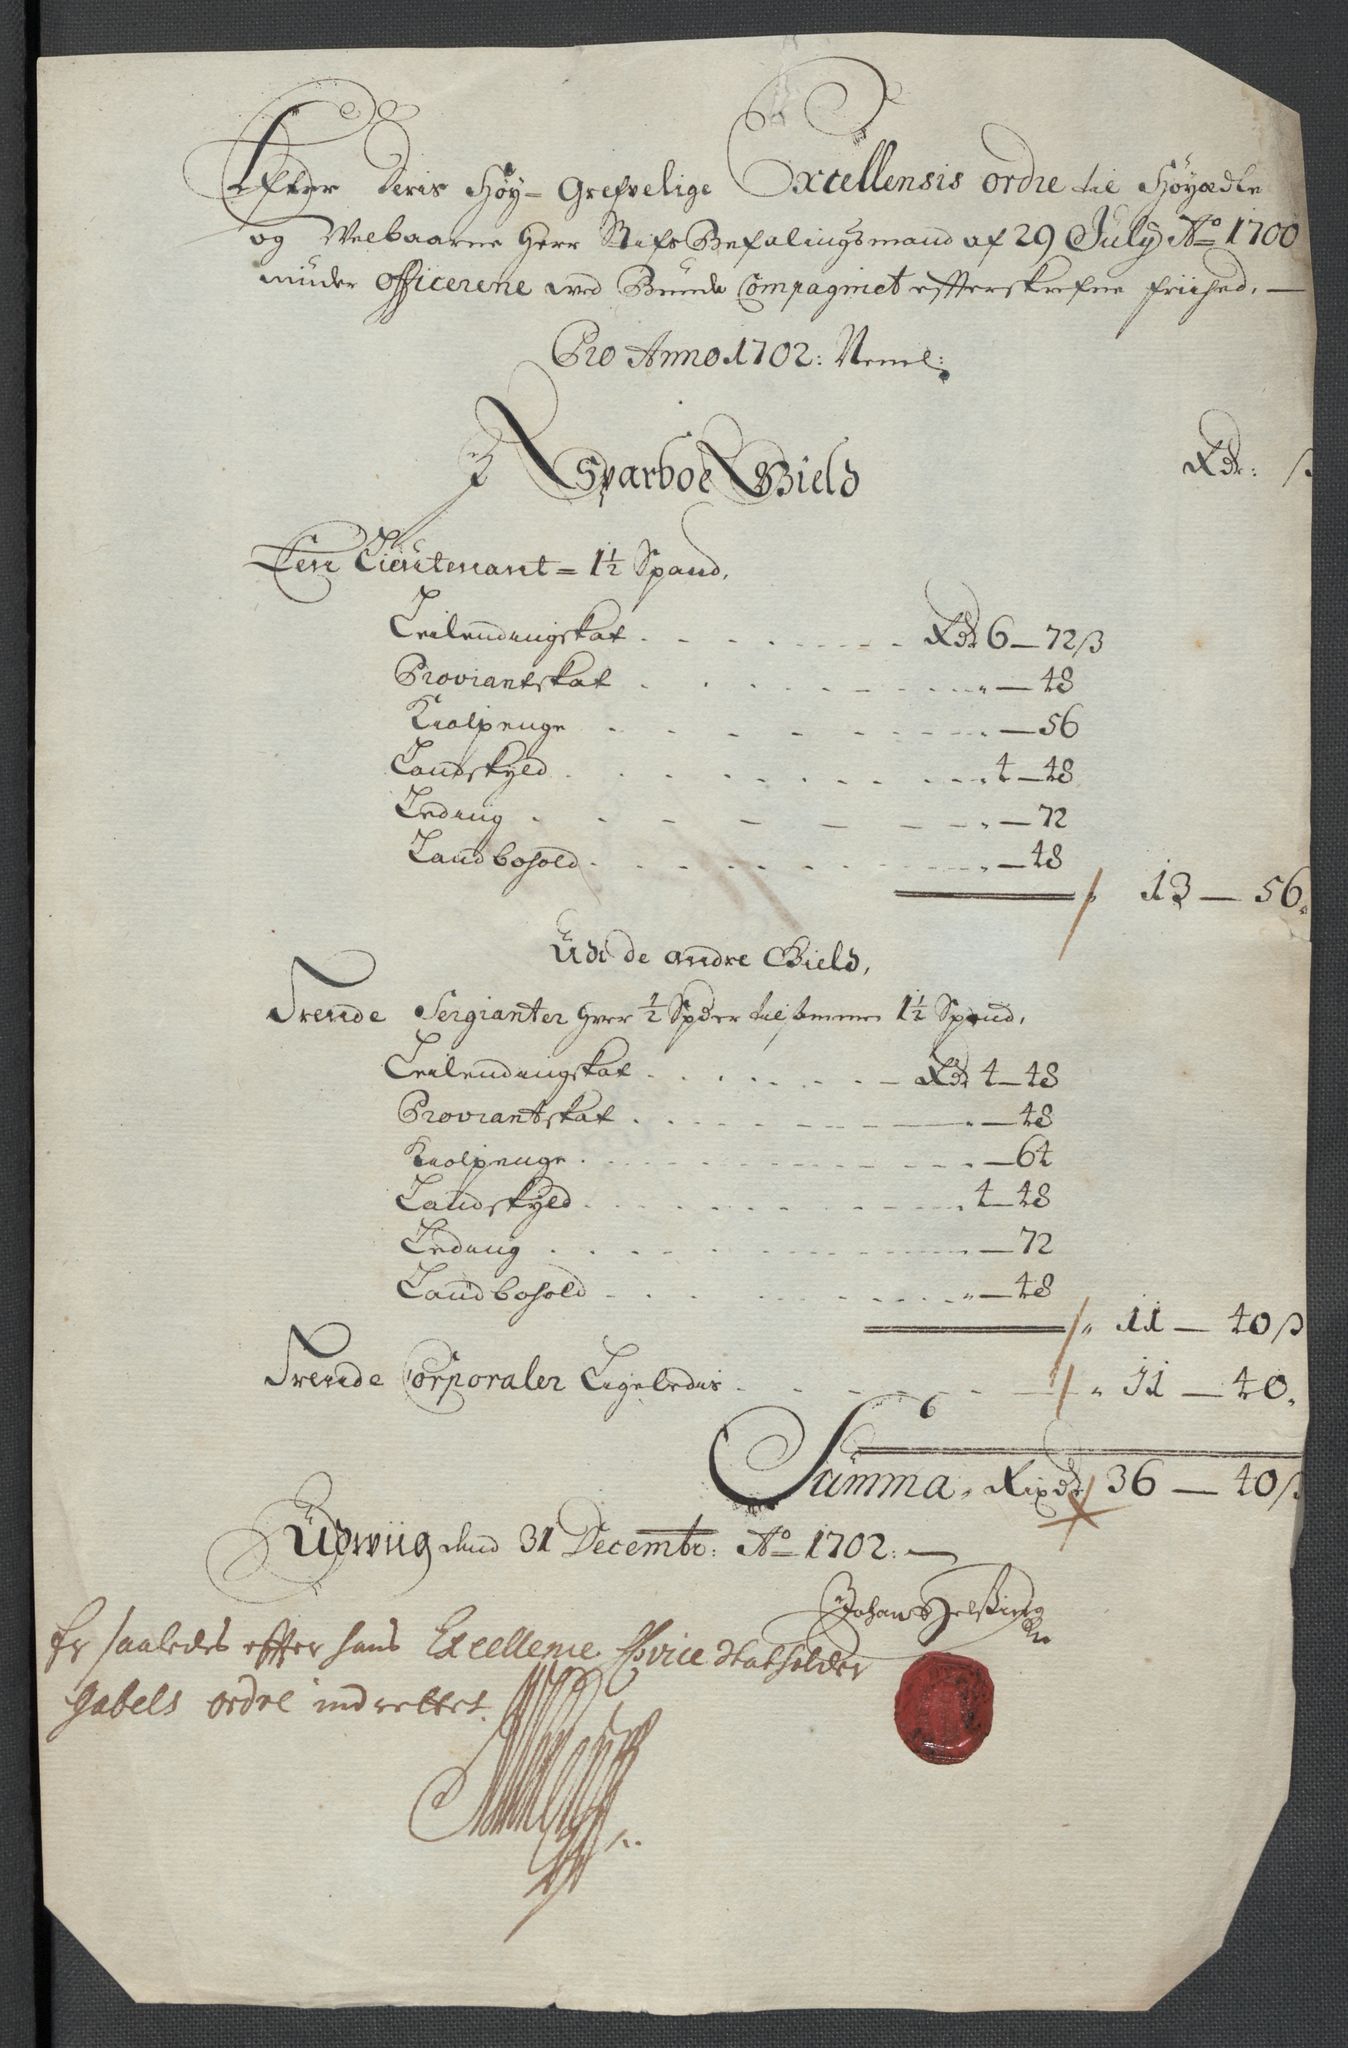 Efter Deris Høy- Grefvelige Excellensis ordre til Høyædle
og Welbaarne Herr Stifs Befalingsmand af 29 July Ao 1700
niuder officerene ved Bunde Compagniet effterskrefne friihed.
Pro Anno 1702: Neml:
Sparboe Gield
Rdr: ß
Een Lieutenant = 1½ Spand,
Leilendingskat Rdr 6 — 72 ß
Proviantskat „ — 48
Kiolpenge „ — 56
Landskyld 4 — 48
Leding „ — 72
Landbohold „ — 48
„ 13 — 56„
Udi de andre Gield,
Trende Sergianter hver ½ Spder tilsammen 1½ Spand,
Leilendingskat Rdr 4 — 48
Proviantskat „ — 48
Kiolpenge „ — 64
Landskyld 4 — 48
Leding „ — 72
Landbohold „ — 48
„ 11 — 40 ß
Trende Corporaler Ligeledis „ 11 — 40„
Summa„ Rixdr 36 — 40 ß
Udwiig dend 31 Decembr: Ao 1702:
Johan Helsing
Er saaledes effter hans Excellence Hr vice Statholder
Gabels ordre indrettet.